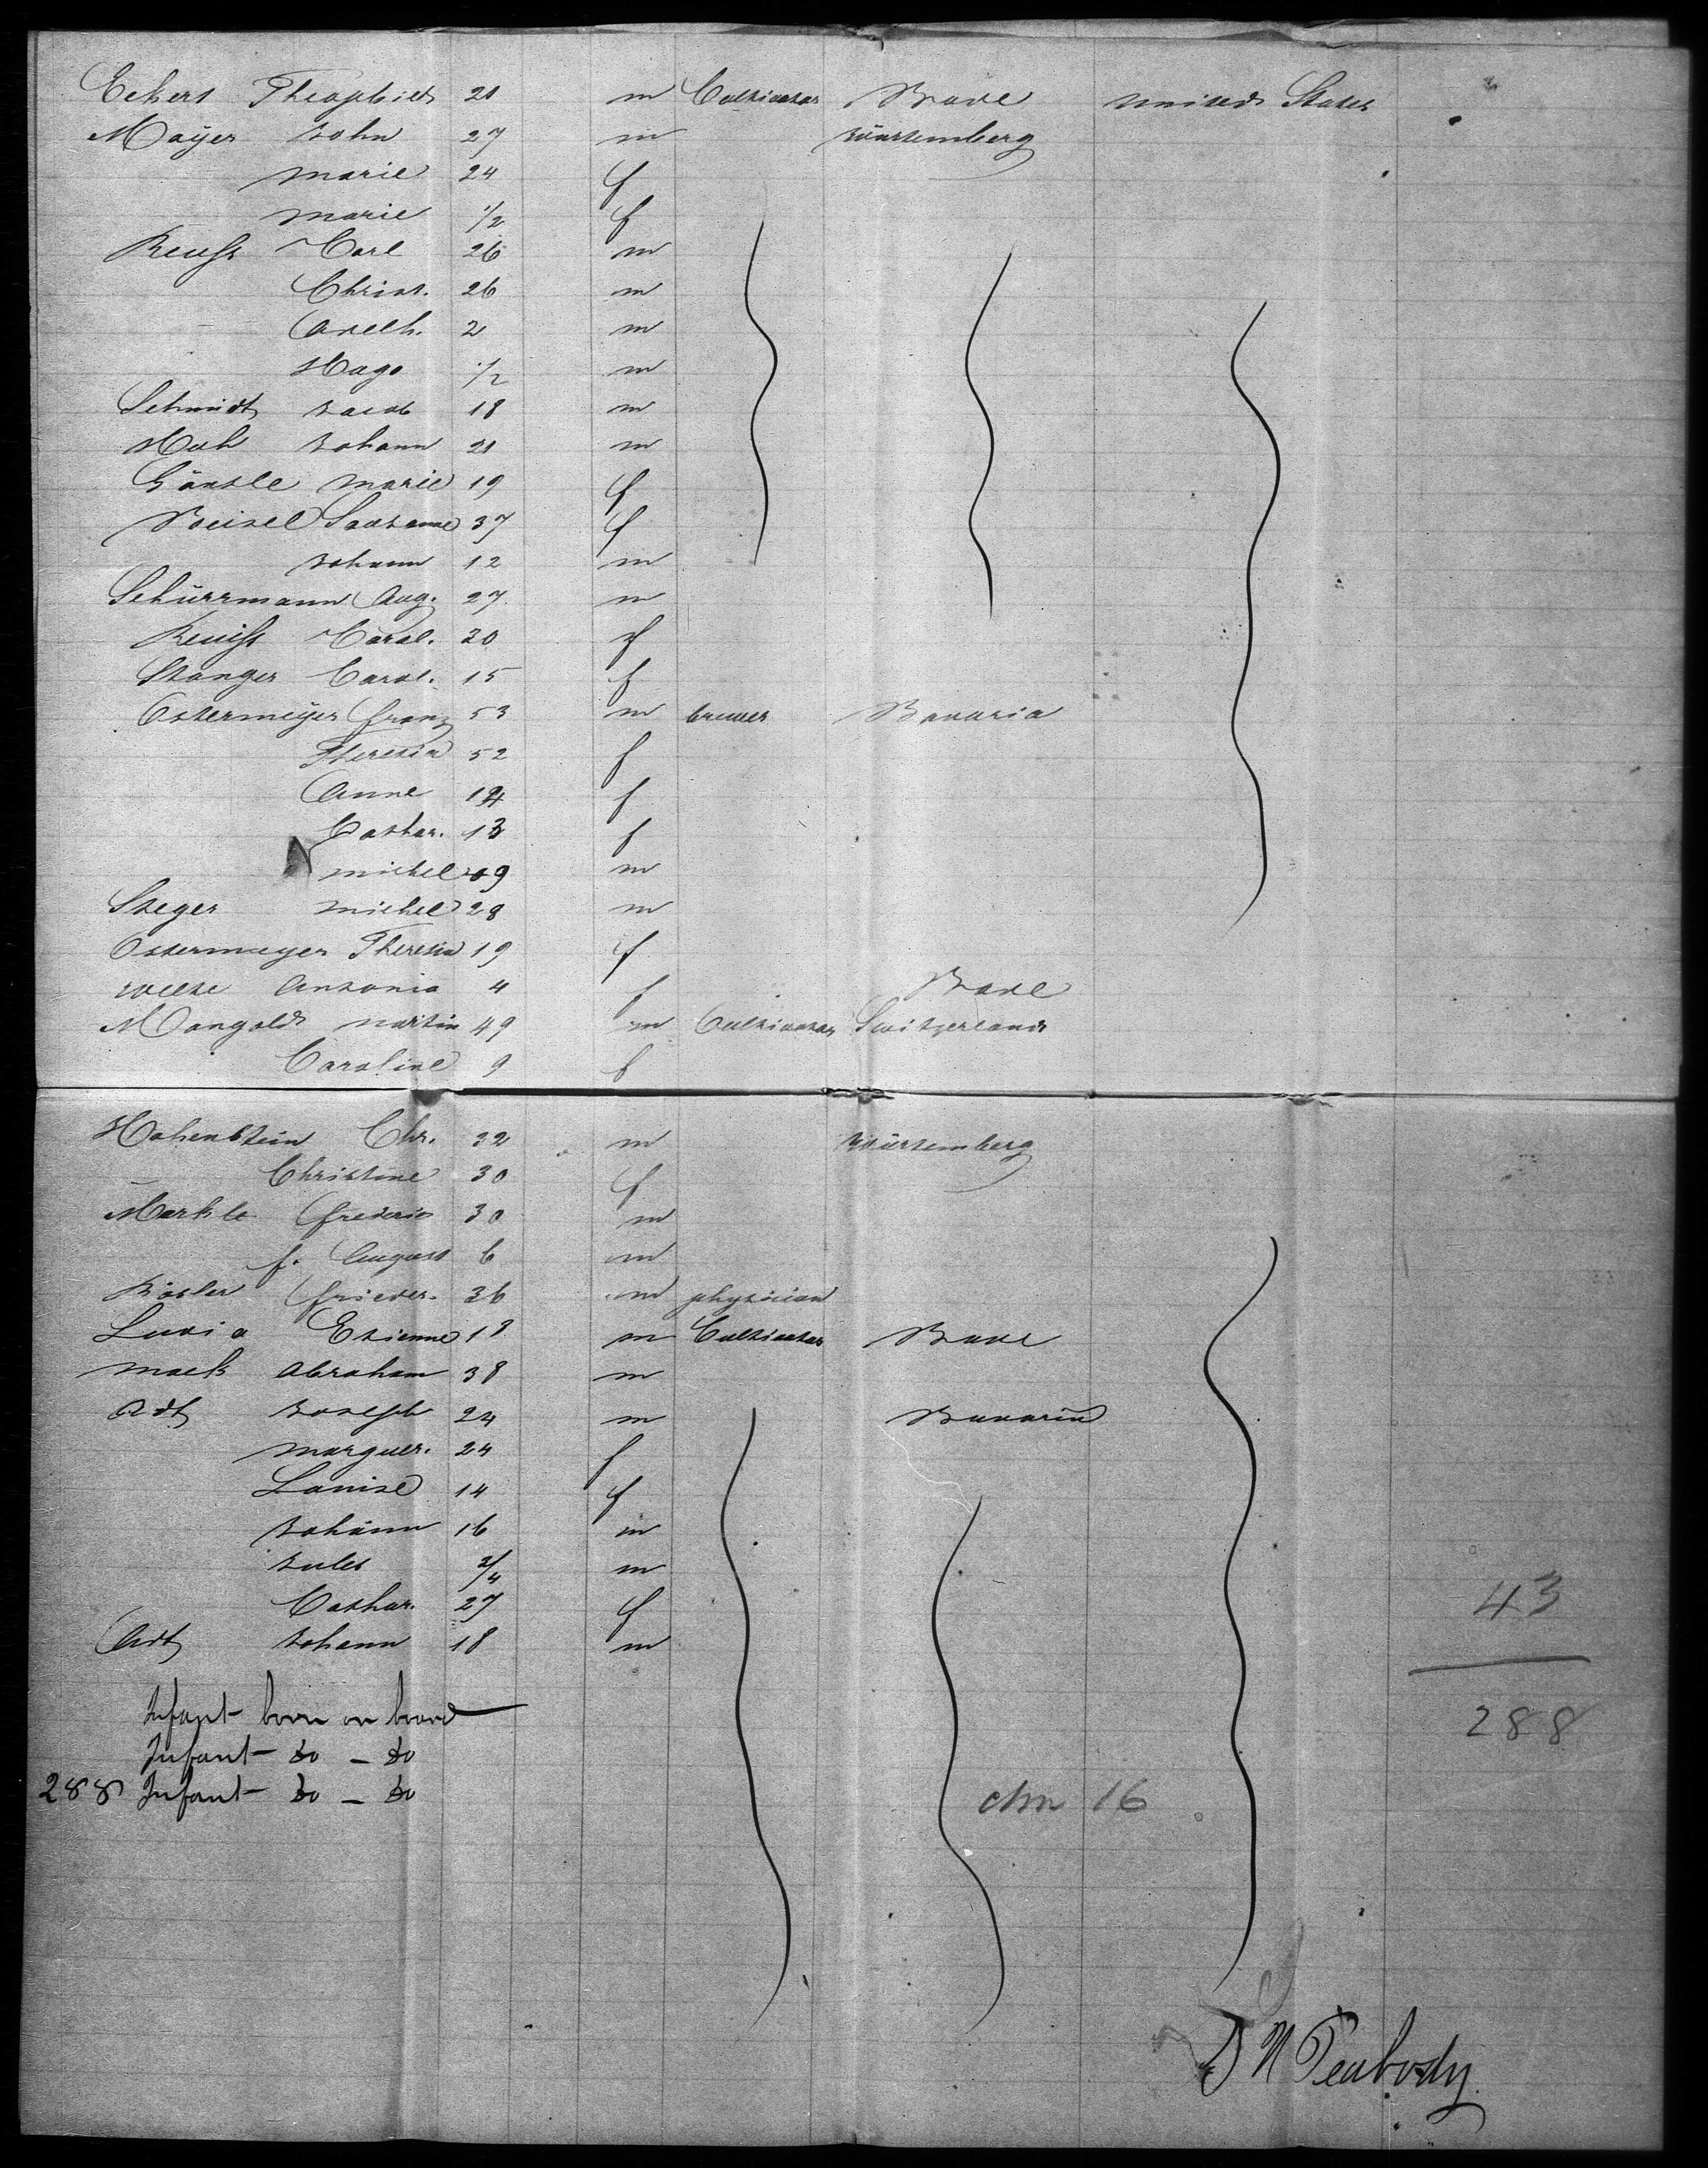 Eckert Theophile 21 m Cultivator Bade united States
Mayer John 27 m Würtemberg
marie 24 f
marie 1/2 f
Reuss Carl 26 m
Christ. 26 m
2 m
Hugo 1/2 m
Schmidt Jacob 18 m
Huh Johann 21 m
Gänsle marie 19 f
Beisel Sussanne 37 f
Johann 12 m
Schürrmann Aug. 27 m
Reuiss Carol. 20 f
Stanger Carol. 15 f
Ostermeÿer franz 53 m brewer Bavaria
Theresia 52 f
Anne 14 f
Cathar. 13 f
michel 9 m
Steger michel 28 m
Ostermeyer Theresia 19 f
Welte Antonia 4 f Bade
Mangold martin 49 m Cultivator Switzerland
Caroline 9 f
Hohenstein Chr. 32 m Würtemberg
Christine 30 f
Markle frederic 30 m
f. August 6 m
Bösler frieder. 36 m physician
Etienne 18 m Cultivator Bade
mack Abraham 38 m
Adt Joseph 24 m Bavaria
marguer. 24 f
Louise 14 f
Johann 16 m
Jules 3/4 m
Cathar. 27 f
Adt Johann 18 m
43
Infant born on board
288
Infant do - do
288 Infant do - do
chn 16
D N Peabody